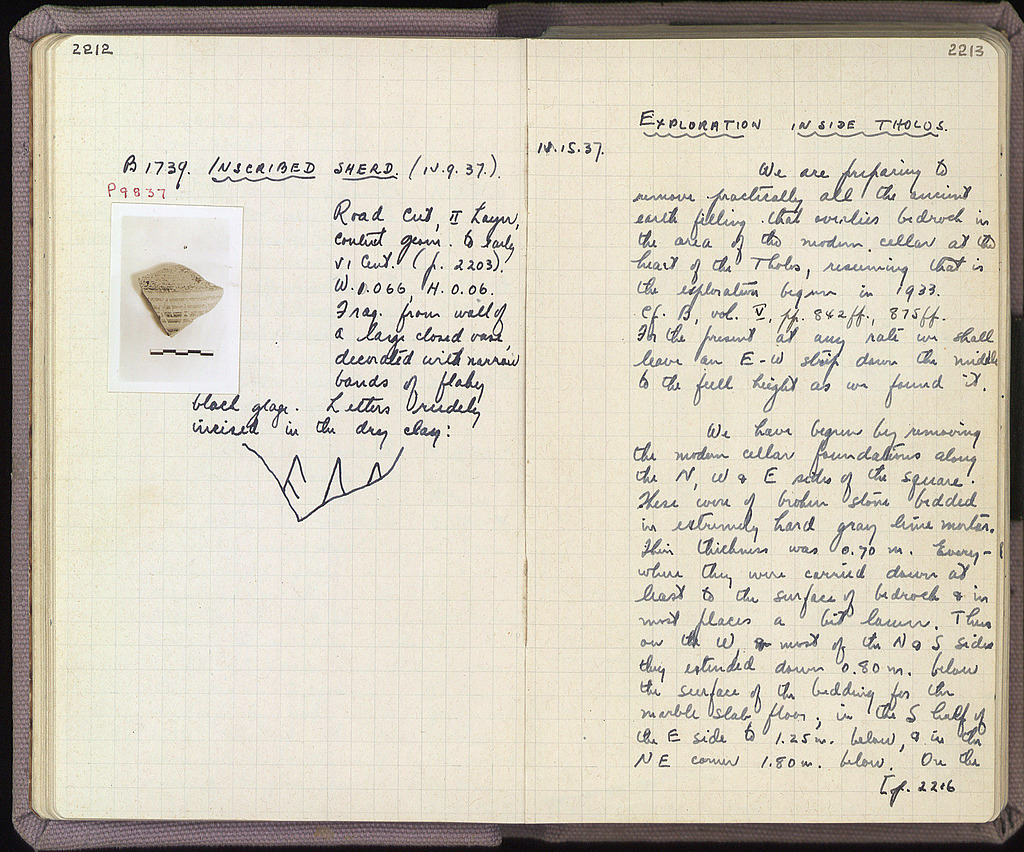 2212
B 1739. INSCRIBED SHERD. (IV.9.37.).
P 9837
Road cut, II Layer,
context geom. to early
VI Cent. (p. 2203).
W. 0.066, H. 0.06.
Frag. from wall of
a large closed vase,
decorated with narrow
bands of flaky
black glaze. Letters rudely
incised in the dry clay:
2213
EXPLORATION INSIDE THOLOS.
IV.15.37.
We are preparing to
remove practically all the ancient
earth filling that overlies bedrock in
the area of the modern cellar at the
heart of the Tholos, resuming that is
the exploration begun in 1933.
Cf. B, vol. V, pp. 842ff., 875ff.
For the present at any rate we shall
leave an E-W strip down the middle
to the full height as we found it.
We have begun by removing
the modern cellar foundations along
the N, W & E sides of the square.
These were of broken stone bedded
in extremely hard gray lime mortar.
Their thickness was 0.70 m. Every-
where they were carried down at
least to the surface of bedrock & in
most places a bit lower. Thus
on the W, & most of the N & S sides
they extended down 0.80 m. below
the surface of the bedding for the
marble slab floor; in the S half of
the E side to 1.25 m. below, & in the
NE corner 1.80 m. below. On the
[p. 2216